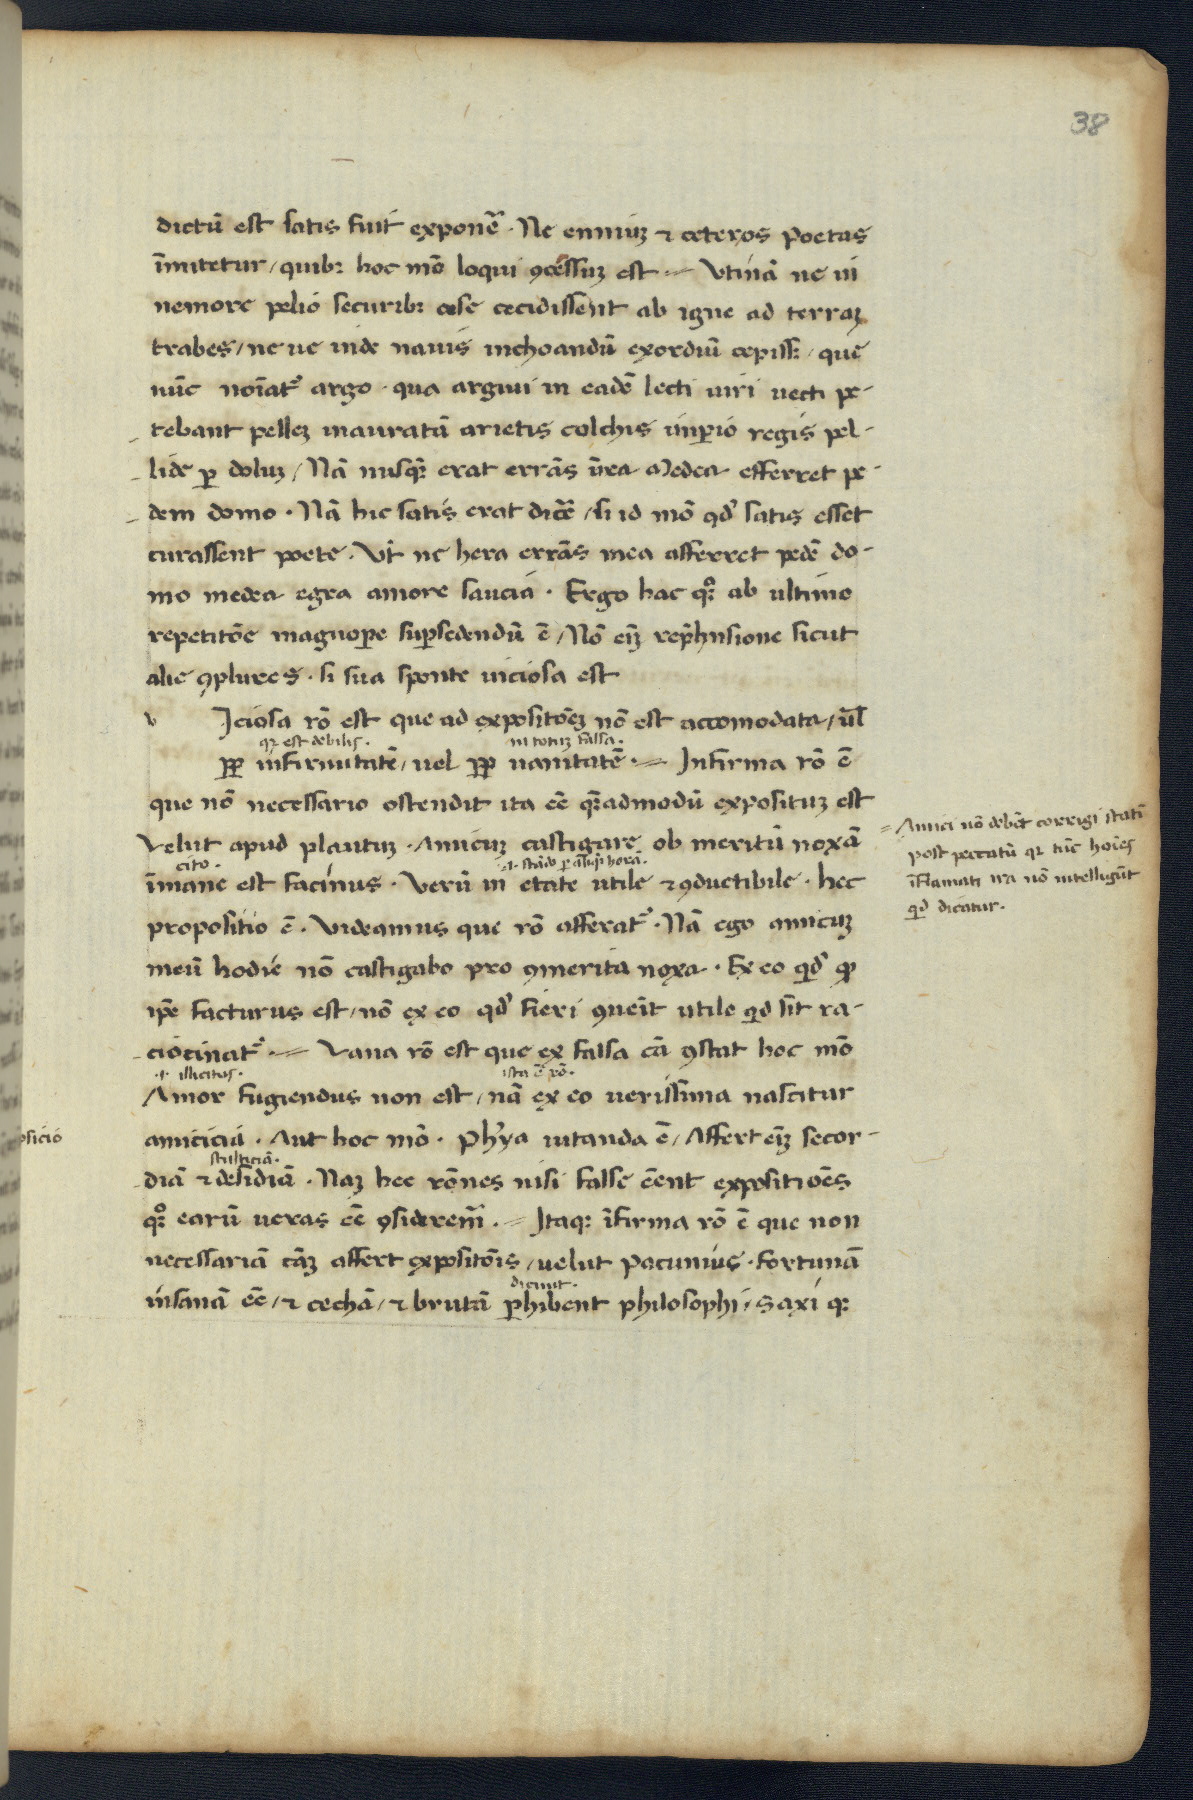 38
dictū est satis fuit exponē̃. Ne enniuz ⁊ ceteros Poetas
īmitetur/ quibꝫ hoc mō loqui ꝯcessuz est⹀ Vtinā ne in
nemore pelio securibꝫ cese cecidissent ab igne ad terraz
trabes/ ne ue inde nauis inchoandū exordiū cepissꝫ/ que
nūc noīat᷑ argo. qua argiui in eadē lecti uiri uecti pe-
tebant pellez inauratā arietis colchis imꝑio regis pel-
lide ꝑ doluz/ Nā nusqꝫ erat errās ūrea Medea efferret pe-
dem domo. Nā hic satis erat dicē̃/ si id mō qd̓ satis esset
curassent poete. Vt̓ ne hera errās mea afferret pedē do-
mo medea egra amore saucia. Ergo hac qꝫ ab ultimo
repetitōe magnoꝑe suꝑsedendū ē/ Nō eīz rep̄hn̄sione sicut
alie ꝯplures. si sua sponte uiciosa est
v Iciosa rō est que ad expositōez nō est accomodata/ ūl
qꝫ est debilis. in totuz falsa.
ꝓꝑ infirmitatē/ uel ꝓꝑ uanitatē.⹀ Infirma rō ē
que nō necessario ostendit ita eē qꝫadmodū expositum est
Velut apud plautuz. Amicuz castigare ob meritū noxā
cito. .i.
īmane est facinus. Verū in etate utile ⁊ ꝯductibile. hec
propositio ē. Videamus que rō afferat᷑. Nā ego amicuz
meū hodie nō castigabo pro ꝯmerita noxa. Ex eo qd̓ ꝓ
ip̄e facturus est/ nō ex eo qd̓ fieri ꝯueīt utile qd̓ sit ra-
ciocinat᷑.⹀ Vana rō est que ex falsa cā ꝯstat hoc mō
.i. illicitus. ista ē rō.
Amor fugiendus non est/ nā ex eo uerissima nascitur
amicicia. Aut hoc mō. Ph̓ya uitanda ē/ Affert eīz secor-
stulticiā.
diā ⁊ desidiā. Naz hec rōnes nisi false eēnt expositiōes
qꝫ earū ueras eē ꝯsiderem᷑.⹀ Itaqꝫ īfirma rō ē que non
necessariā cāz affert expositōis/ uelut Pacuuius. fortunā
dicunt.
insanā eē/ ⁊ cechā/ ⁊ brutā ꝑhibent philosophi/ Saxi qꝫ
⹀ Amici nō debēt corrigi statī
post peccatū qꝫ tūc hoīes
īflamati ira nō intelligūt
qd̓ dicatur.
sicio